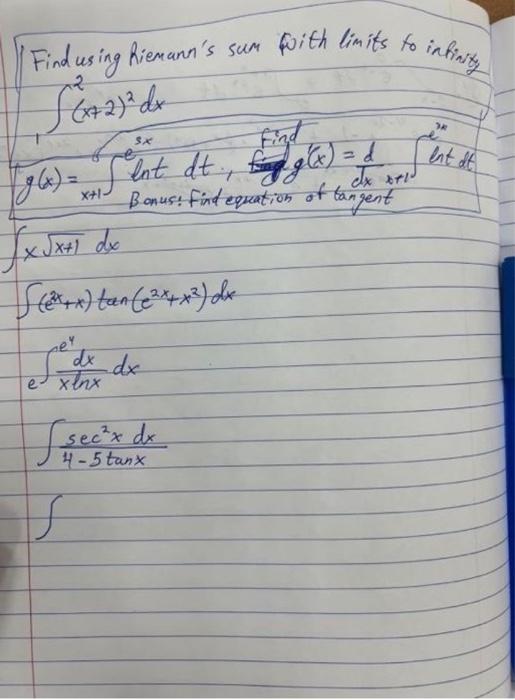 Find using Riemann's sum with limits to infinity
₁∫² (x+2)² dx
g(x) = ₓ₊₁∫^(e^3x) lnt dt, find g'(x) = d/dx ₓ₊₁∫^(e^3x) lnt dt
Bonus: find equation of tangent
∫ x √(x+1) dx
∫ (e^2x + x) tan (e^2x + x²) dx
e∫^(e^4) dx/(x lnx) dx
∫ sec²x dx / (4 - 5 tanx)
∫